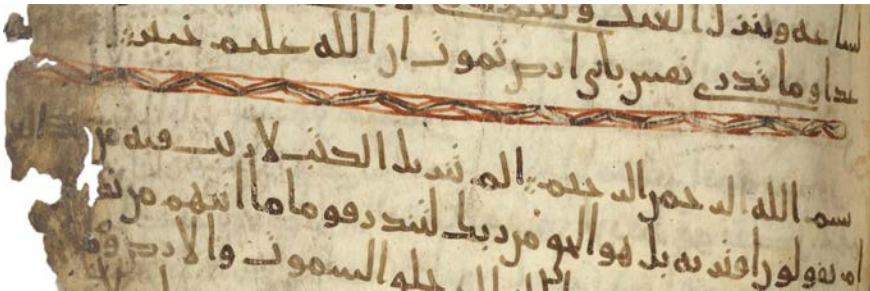 لساعه وينزل الغيث ويعلم
غدا وما تدري نفس باي ارض تموت ان الله عليم خبير
بسم الله الرحمن الرحيم الم تنزيل الكتب لا ريب فيه من
ام يقولون افتريه بل هو الحق من ربك لتنذر قوما ما اتيهم من نذ
خلق السموت والارض وما